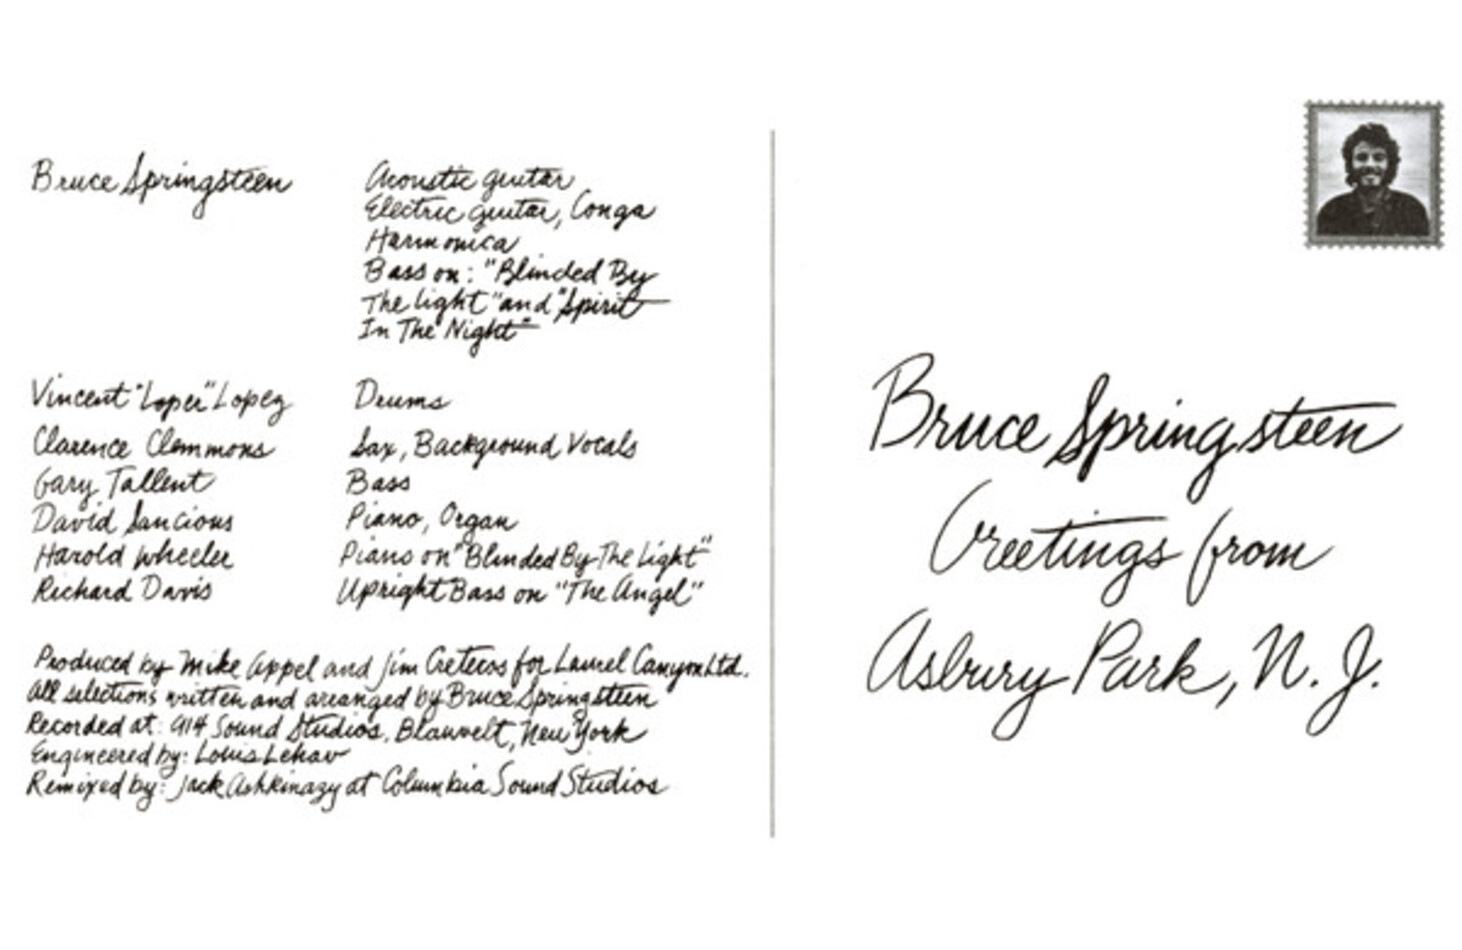 Bruce Springsteen Acoustic guitar
Electric guitar, Conga
Harmonica
Bass on: "Blinded By
The Light" and "Spirit
In The Night"
Vincent "Loper" Lopez Drums
Clarence Clemmons Sax, Background Vocals
Gary Tallent Bass
David Sancious Piano, Organ
Harold Wheeler Piano on "Blinded By The Light"
Richard Davis Upright Bass on "The Angel"
Produced by Mike Appel and Jim Cretecos for Laurel Canyon Ltd.
All selections written and arranged by Bruce Springsteen
Recorded at: 914 Sound Studios, Blauvelt, New York
Engineered by: Louis Lehav
Remixed by: Jack Ashkinazy at Columbia Sound Studios
Bruce Springsteen
Greetings from
Asbury Park, N. J.